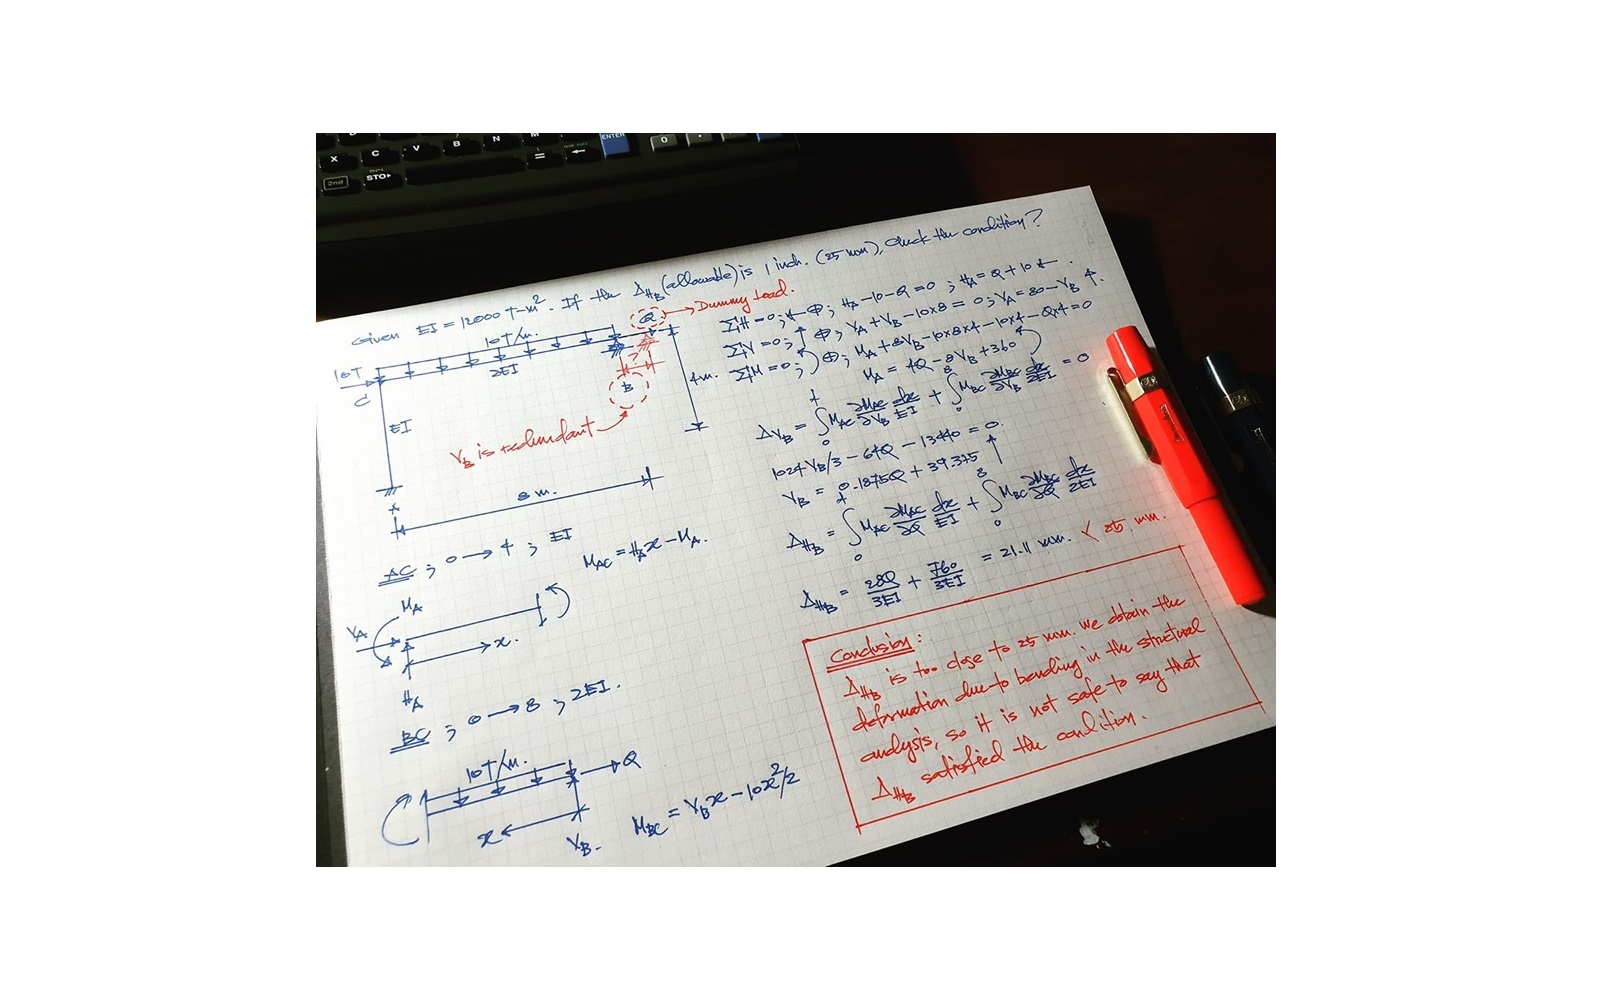 X C V B N M ENTER 0 .
2nd STO▸ = ←
Given EI = 12000 T-m². If the Δ_HB (allowable) is 1 inch. (25 mm), check the condition?
Q → Dummy Load.
10T/m.
10T
C
2EI
EI
4m.
?
B
V_B is redundant
8 m.
A
ΣH = 0; ← ⊕; H_A - 10 - Q = 0; H_A = Q + 10 ← .
ΣV = 0; ↑ ⊕; V_A + V_B - 10x8 = 0; V_A = 80 - V_B ↑.
ΣM = 0; ⊕; M_A + 8V_B - 10x8x4 - 10x4 - Qx4 = 0
M_A = 4Q - 8V_B + 360
Δ_VB = ∫₀⁴ M_AC ∂M_AC/∂V_B dx/EI + ∫₀⁸ M_BC ∂M_BC/∂V_B dx/2EI = 0
1024 V_B/3 - 64Q - 13440 = 0.
V_B = 0.1875Q + 39.375 ↑
Δ_HB = ∫₀⁴ M_AC ∂M_AC/∂Q dx/EI + ∫₀⁸ M_BC ∂M_BC/∂Q dx/2EI
Δ_HB = 28Q/3EI + 760/3EI = 21.11 mm. < 25 mm.
AC; 0 → 4; EI
M_AC = H_A x - M_A.
M_A
V_A
x.
H_A
BC; 0 → 8; 2EI.
10T/m.
Q
x
V_B.
M_BC = V_B x - 10x²/2
Conclusion:
Δ_HB is too close to 25 mm. we obtain the
deformation due to bending in the structural
analysis, so it is not safe to say that
Δ_HB satisfied the condition.